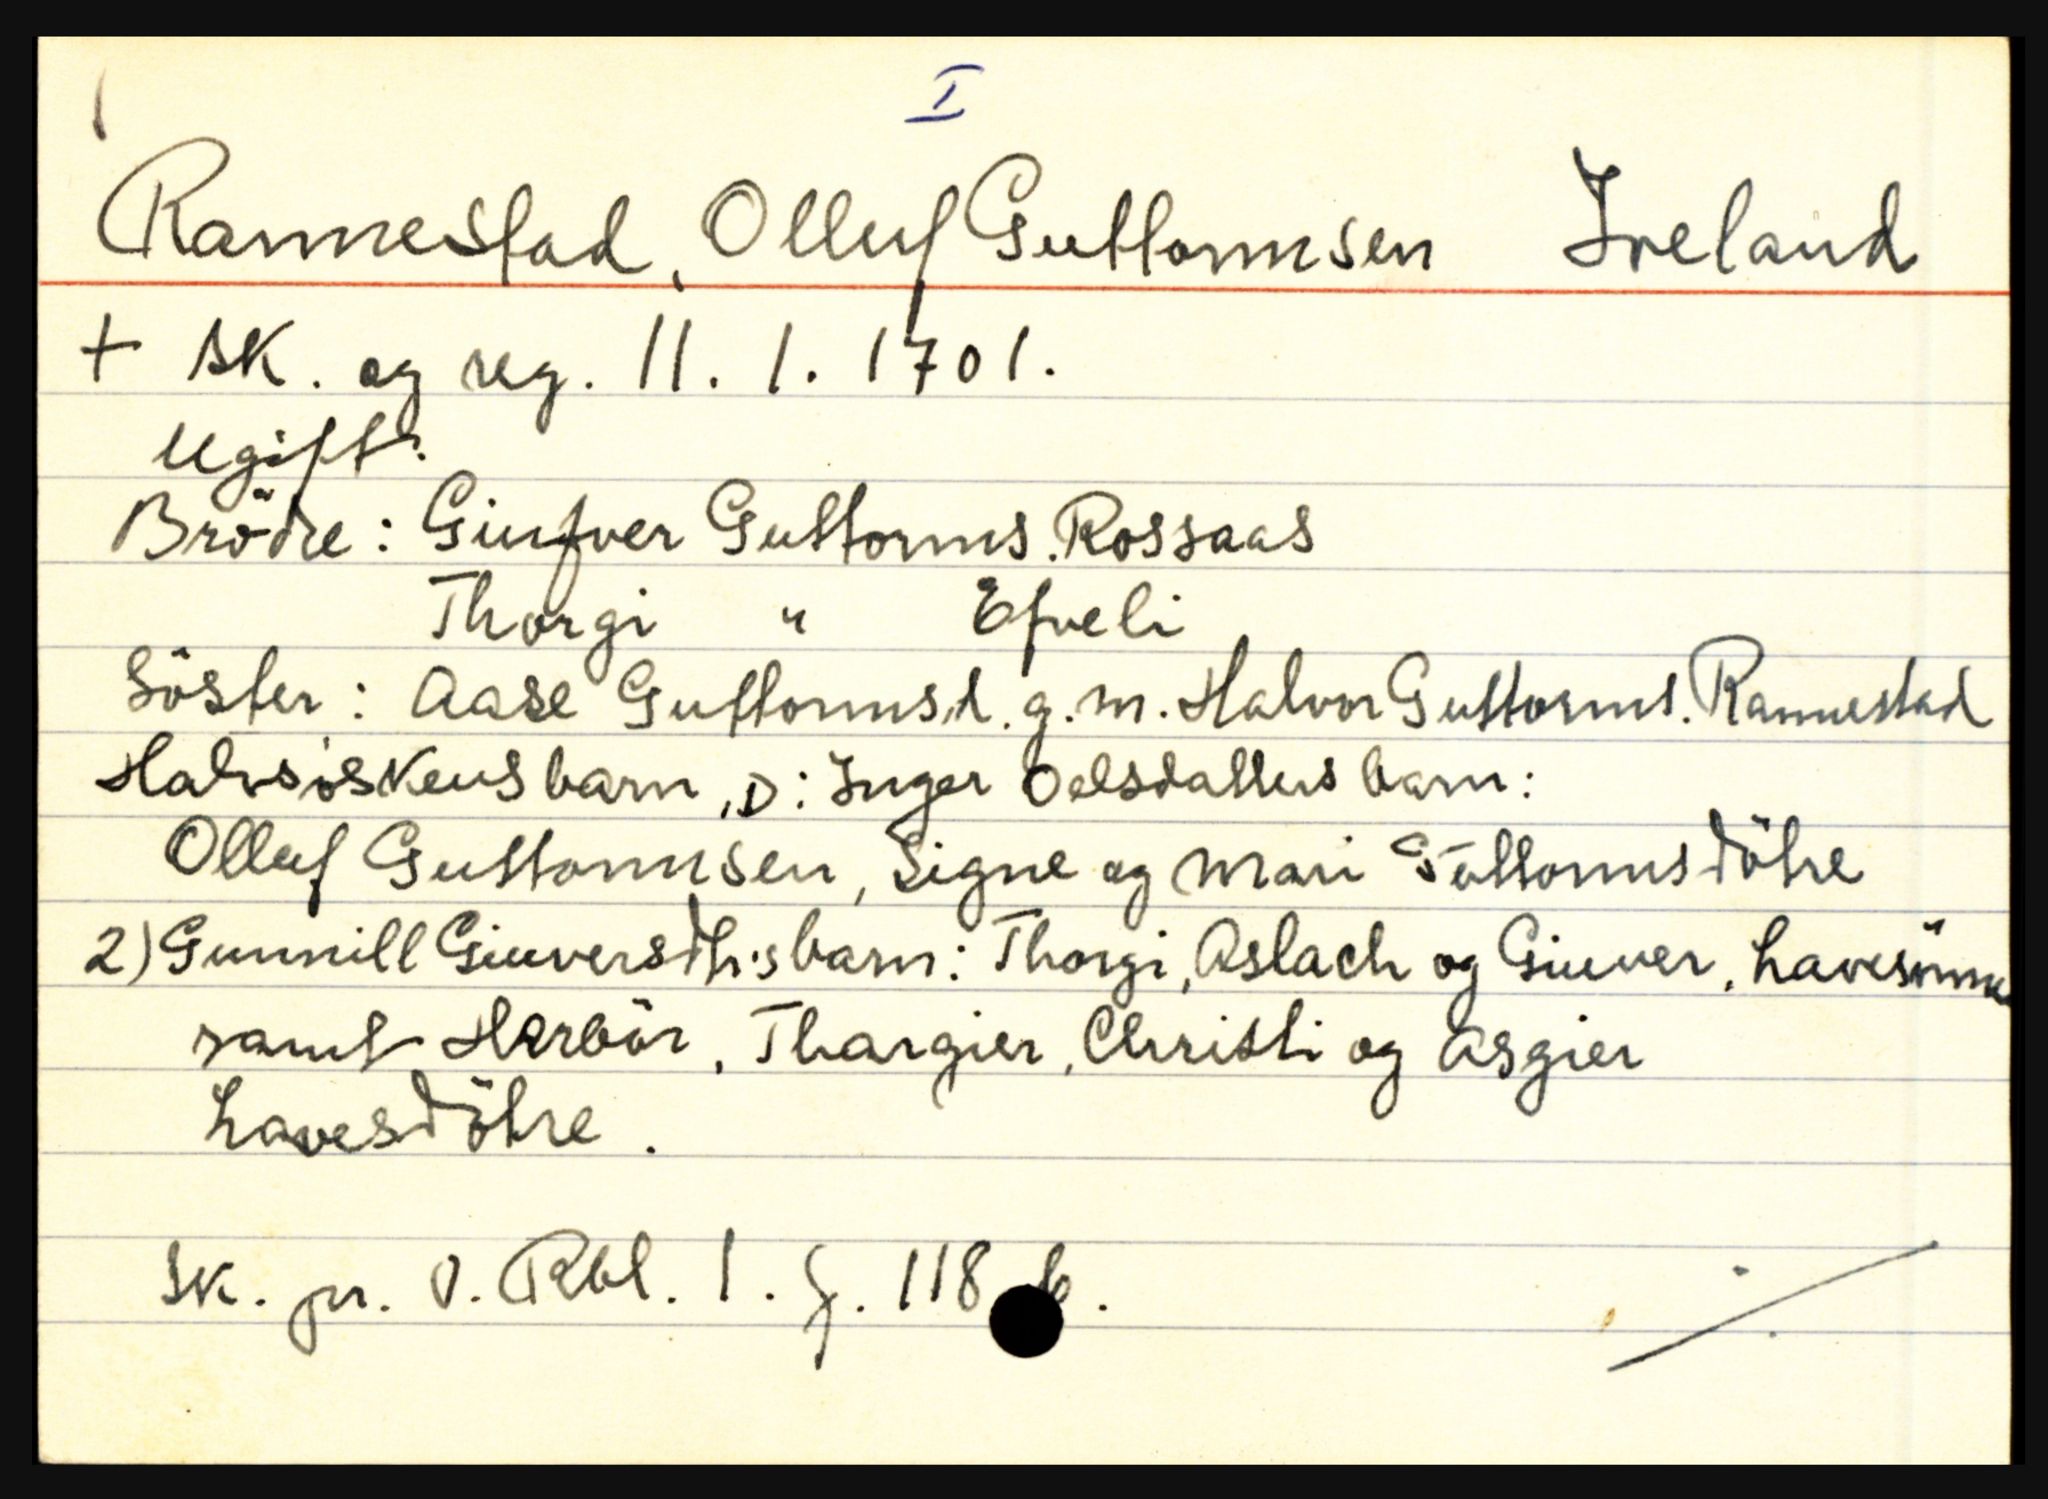 I
Rannestad, Olluf Guttormsen Iveland
+ sk. og reg. 11. 1. 1701.
Ugift.
Brödre: Giufver Guttorms. Rossaas
Thorgi " Efveli
Söster: Aase Guttormsd. g. m. Halvor Guttorms. Rannestad
Halvsöskens barn, ɔ: Inger Oelsdatters barn:
Olluf Guttormsen, Signe og Mari Guttormsdötre
2) Gunnill Giuversdt.s barn: Thorgi, Aslach og Giuver, Lavesönner
samt Herbör, Thargier, Christi og Asgier
Lavesdötre.
Sk. pr. O. Rbl. 1. f. 118 b.